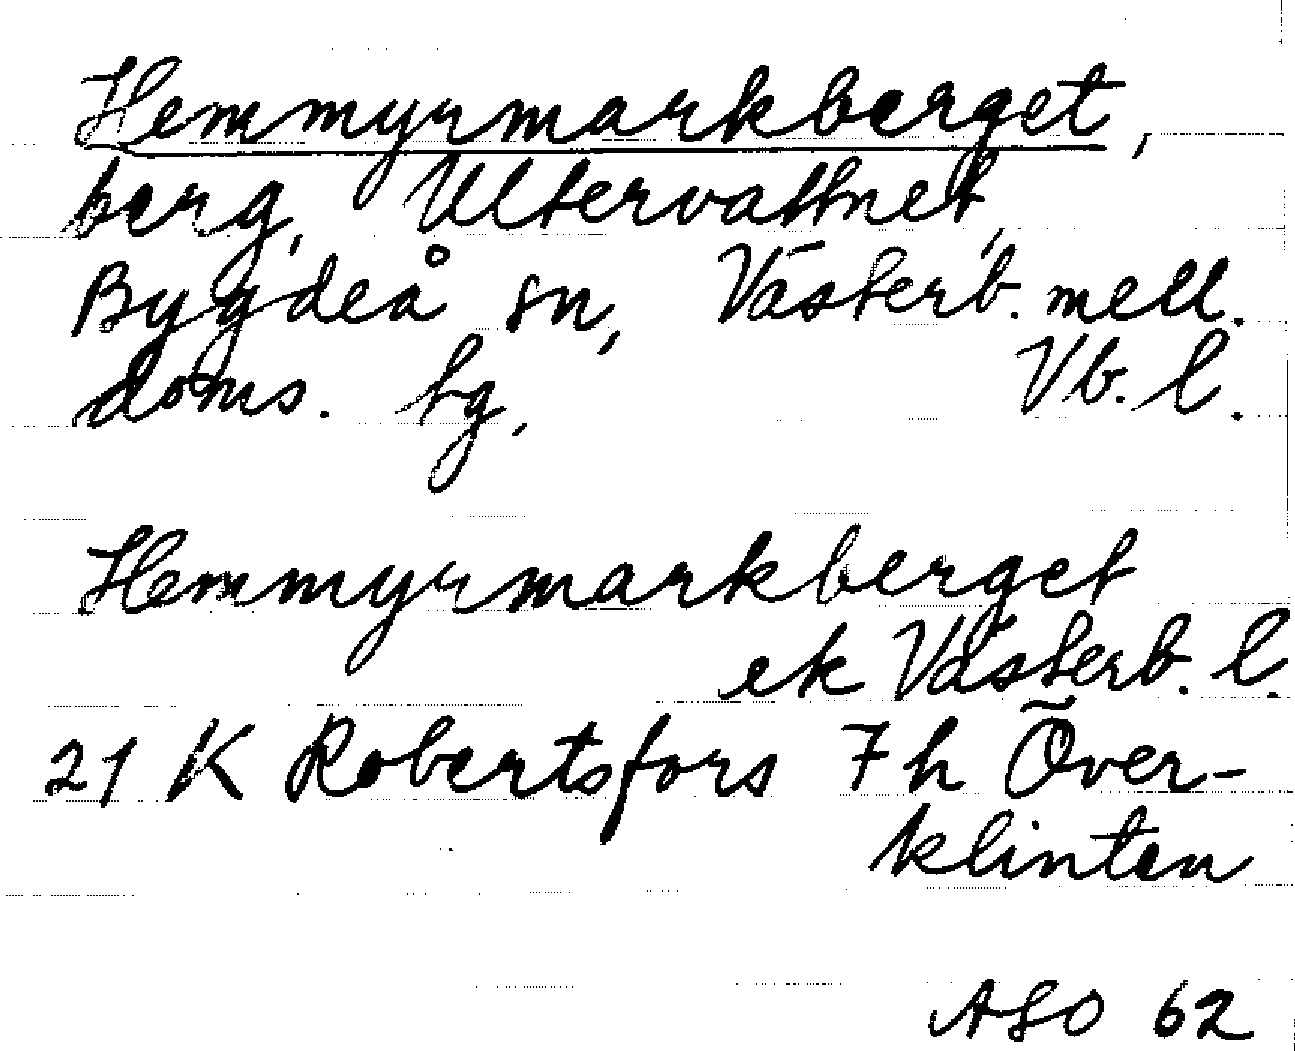 Hemmyrmarkberget,
berg, Ultervattnet,
Bygdeå sn, Västerb. mell.
doms. tg, Vb. l.
Hemmyrmarkberget
ek Västerb. l.
21 K Robertsfors 7 h Över-
klinten
ASO 62